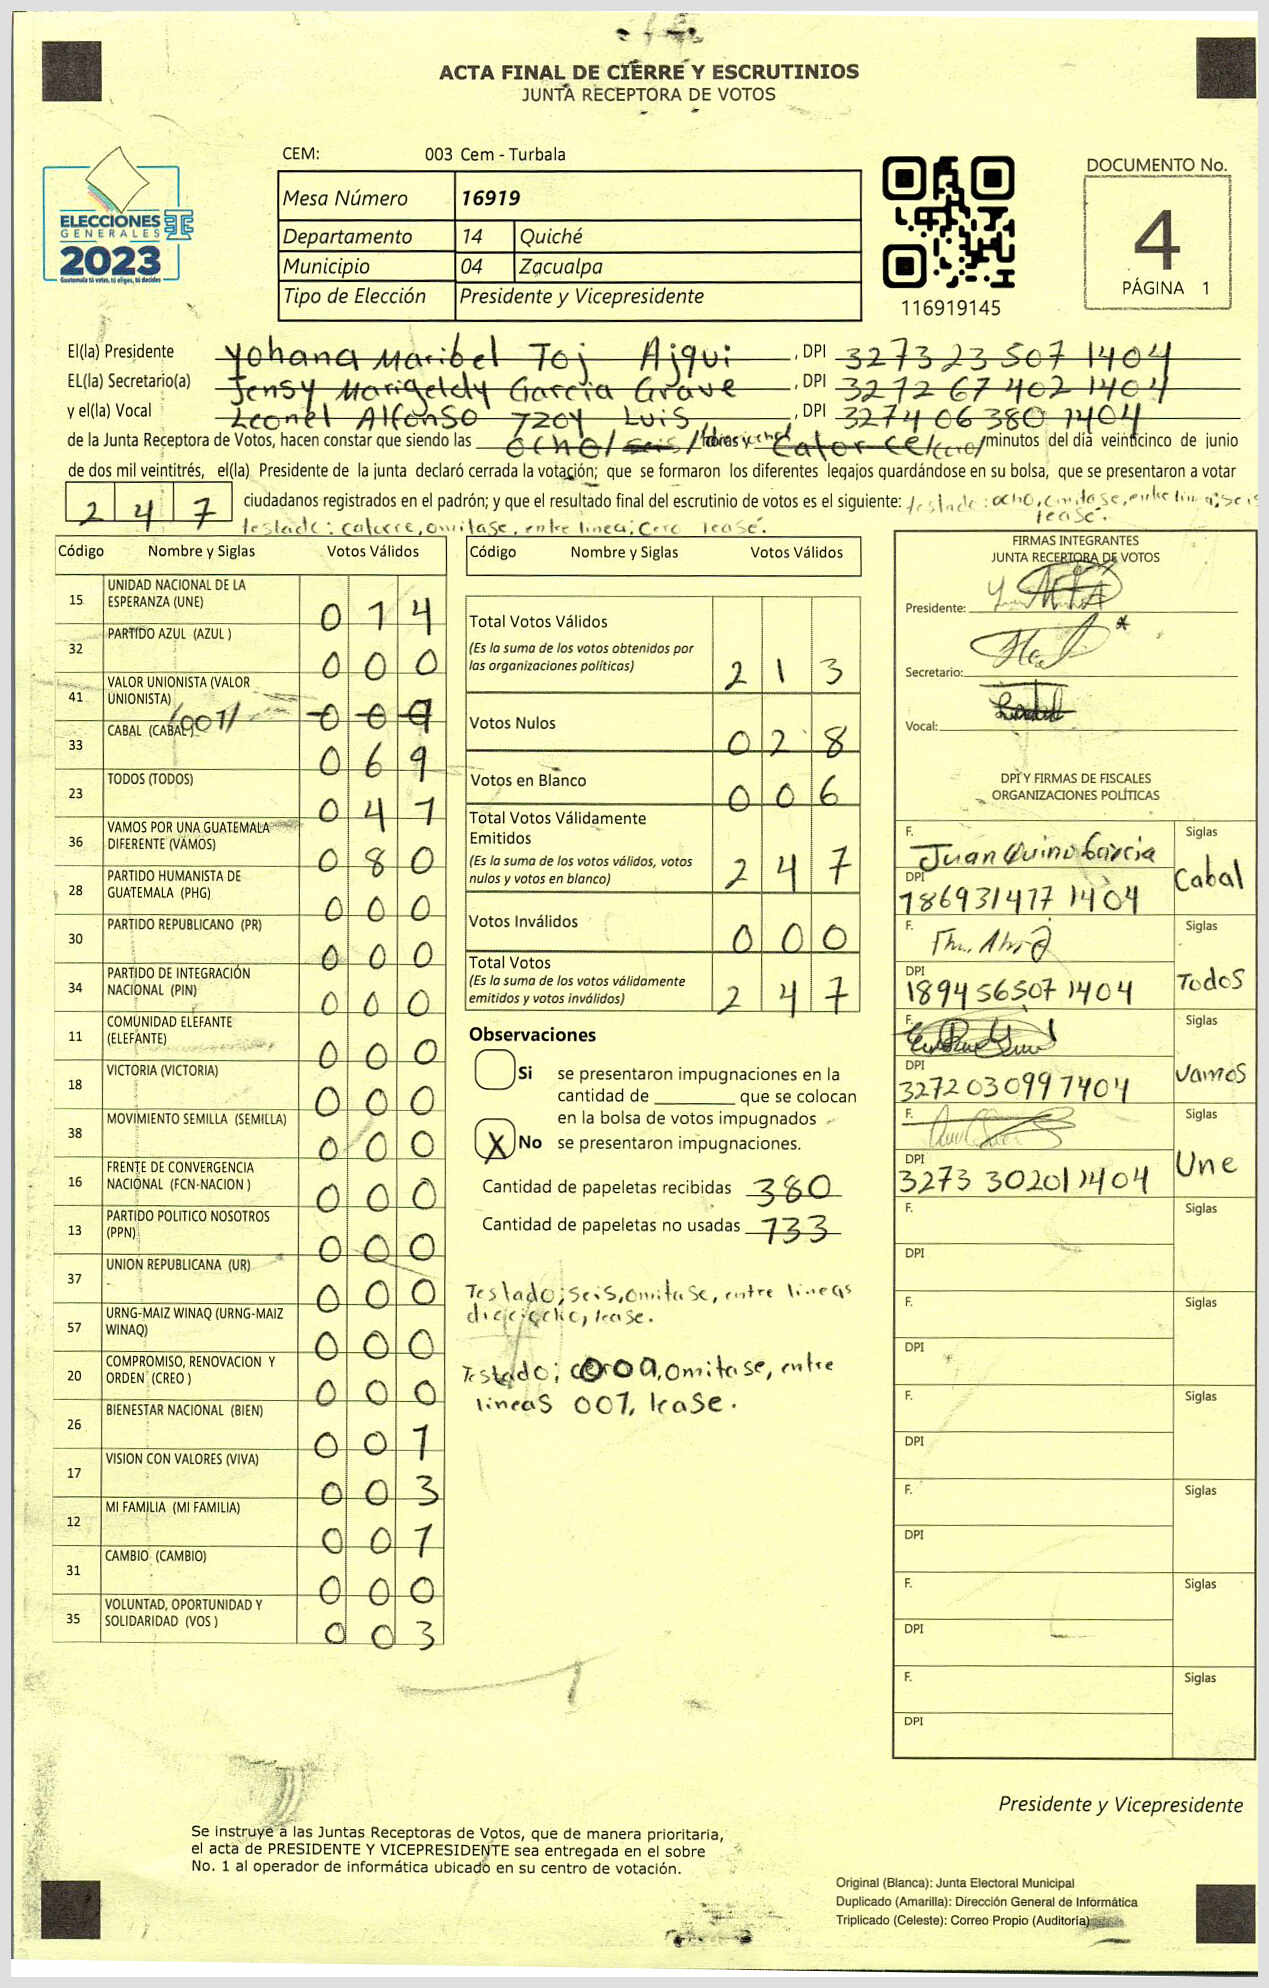 ACTA FINAL DE CIERRE Y ESCRUTINIOS
JUNTA RECEPTORA DE VOTOS
CEM: 003 Cem - Turbala
ELECCIONES
GENERALES
2023
Guatemala tú votas, tú eliges, tú decides
Mesa Número 16919
Departamento 14 Quiché
Municipio 04 Zacualpa
Tipo de Elección Presidente y Vicepresidente
116919145
DOCUMENTO No.
4
PÁGINA 1
El(la) Presidente Yohana Maribel Toj Ajqui, DPI 3273 23 507 1404
EL(la) Secretario(a) Jensy Marigeldy Garcia Grave, DPI 3272 67 402 1404
y el(la) Vocal Leonel Alfonso Tzoy Luis, DPI 3274 06 380 1404
de la Junta Receptora de Votos, hacen constar que siendo las ocho/seis/ horas y catorce/cero/ minutos del día veinticinco de junio
de dos mil veintitrés, el(la) Presidente de la junta declaró cerrada la votación; que se formaron los diferentes legajos guardándose en su bolsa, que se presentaron a votar
247 ciudadanos registrados en el padrón; y que el resultado final del escrutinio de votos es el siguiente: testado: ocho, omitase, entre linea; seis
lease.
testado: catorce, omitase, entre linea; cero lease.
Código Nombre y Siglas Votos Válidos
15 UNIDAD NACIONAL DE LA ESPERANZA (UNE) 014
32 PARTIDO AZUL (AZUL ) 000
41 VALOR UNIONISTA (VALOR UNIONISTA) /001/ 009
33 CABAL (CABAL ) 069
23 TODOS (TODOS) 041
36 VAMOS POR UNA GUATEMALA DIFERENTE (VAMOS) 080
28 PARTIDO HUMANISTA DE GUATEMALA (PHG) 000
30 PARTIDO REPUBLICANO (PR) 000
34 PARTIDO DE INTEGRACIÓN NACIONAL (PIN) 000
11 COMUNIDAD ELEFANTE (ELEFANTE) 000
18 VICTORIA (VICTORIA) 000
38 MOVIMIENTO SEMILLA (SEMILLA) 000
16 FRENTE DE CONVERGENCIA NACIONAL (FCN-NACION ) 000
13 PARTIDO POLITICO NOSOTROS (PPN) 000
37 UNION REPUBLICANA (UR) 000
57 URNG-MAIZ WINAQ (URNG-MAIZ WINAQ) 000
20 COMPROMISO, RENOVACION Y ORDEN (CREO ) 000
26 BIENESTAR NACIONAL (BIEN) 001
17 VISION CON VALORES (VIVA) 003
12 MI FAMILIA (MI FAMILIA) 001
31 CAMBIO (CAMBIO) 000
35 VOLUNTAD, OPORTUNIDAD Y SOLIDARIDAD (VOS ) 003
Código Nombre y Siglas Votos Válidos
Total Votos Válidos 213
(Es la suma de los votos obtenidos por
las organizaciones políticas)
Votos Nulos 028
Votos en Blanco 006
Total Votos Válidamente
Emitidos 247
(Es la suma de los votos válidos, votos
nulos y votos en blanco)
Votos Inválidos 000
Total Votos 247
(Es la suma de los votos válidamente
emitidos y votos inválidos)
Observaciones
Si se presentaron impugnaciones en la
cantidad de ________ que se colocan
en la bolsa de votos impugnados
X No se presentaron impugnaciones.
Cantidad de papeletas recibidas 380
Cantidad de papeletas no usadas 133
Testado; seis, omitase, entre lineas
dieciocho, lease.
Testado; 009, omitase, entre
lineas 001, lease.
FIRMAS INTEGRANTES
JUNTA RECEPTORA DE VOTOS
Presidente:
Secretario:
Vocal:
DPI Y FIRMAS DE FISCALES
ORGANIZACIONES POLÍTICAS
F. Juan Quino Garcia Siglas
DPI 186931417 1404 Cabal
F. Siglas
DPI 189456507 1404 Todos
F. Siglas
DPI 3272030991404 Vamos
F. Siglas
DPI 3273 30201 1404 Une
F. Siglas
DPI
F. Siglas
DPI
F. Siglas
DPI
F. Siglas
DPI
F. Siglas
DPI
F. Siglas
DPI
Presidente y Vicepresidente
Se instruye a las Juntas Receptoras de Votos, que de manera prioritaria,
el acta de PRESIDENTE Y VICEPRESIDENTE sea entregada en el sobre
No. 1 al operador de informática ubicado en su centro de votación.
Original (Blanca): Junta Electoral Municipal
Duplicado (Amarilla): Dirección General de Informática
Triplicado (Celeste): Correo Propio (Auditoría)